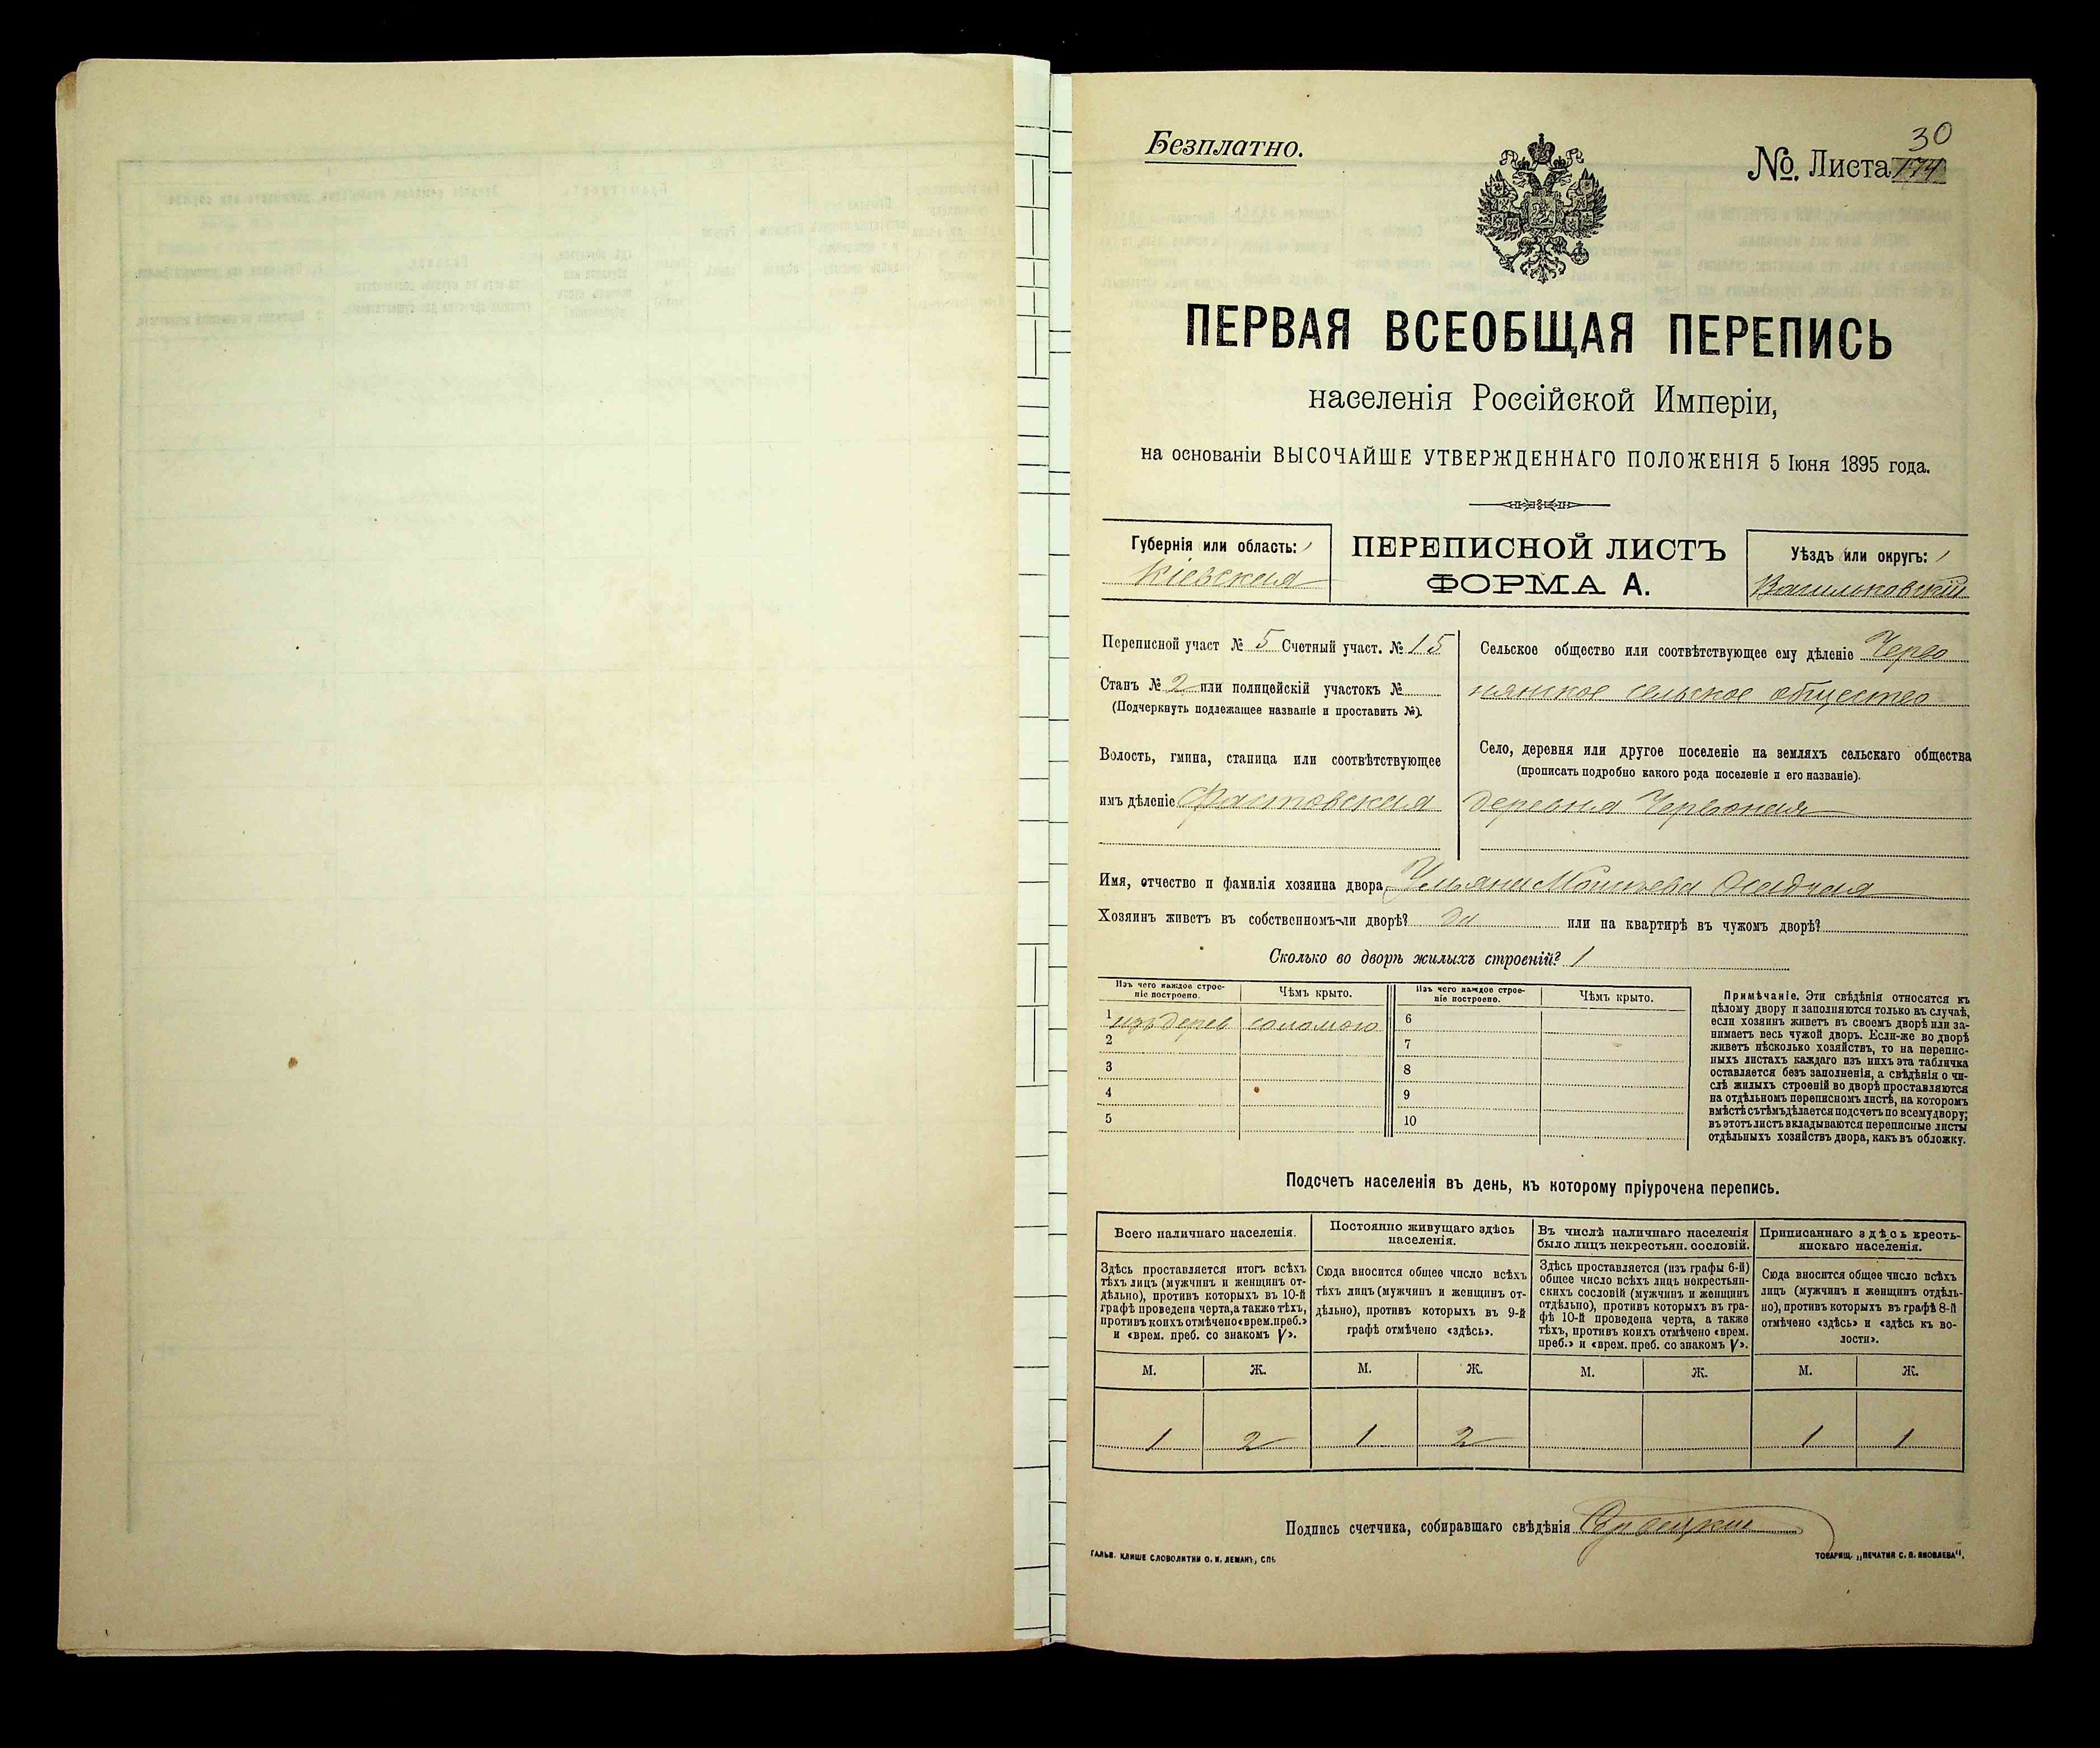 Безплатно.
30
№. Листа 174
ПЕРВАЯ ВСЕОБЩАЯ ПЕРЕПИСЬ
населенія Россійской Имперіи,
на основаніи ВЫСОЧАЙШЕ УТВЕРЖДЕННАГО ПОЛОЖЕНІЯ 5 Іюня 1895 года.
Губернія или область:
Кіевская
ПЕРЕПИСНОЙ ЛИСТЪ
ФОРМА А.
Уѣздъ или округъ:
Васильковскій
Переписной участ № 5 Счетный участ. № 15
Станъ № 2 или полицейскій участокъ №
(Подчеркнуть подлежащее названіе и проставить №).
Волость, гмина, станица или соотвѣтствующее
имъ дѣленіе Фастовская
Сельское общество или соотвѣтствующее ему дѣленіе Черво
нянское сельское общество
Село, деревня или другое поселеніе на земляхъ сельскаго общества
(прописать подробно какого рода поселеніе и его названіе).
деревня Червоная
Имя, отчество и фамилія хозяина двора Ульяна Осадчая
Хозяинъ живетъ въ собственномъ-ли дворѣ? да или на квартирѣ въ чужомъ дворѣ?
Сколько во дворѣ жилыхъ строеній? 1
Изъ чего каждое строе-
ніе построено.
Чѣмъ крыто.
Изъ чего каждое строе-
ніе построено.
Чѣмъ крыто.
1 изъ дерев соломою
2
3
4
5
6
7
8
9
10
Примѣчаніе. Эти свѣдѣнія относятся къ
цѣлому двору и заполняются только въ случаѣ,
если хозяинъ живетъ въ своемъ дворѣ или за-
нимаетъ весь чужой дворъ. Если-же во дворѣ
живетъ нѣсколько хозяйствъ, то на перепис-
ныхъ листахъ каждаго изъ нихъ эта табличка
оставляется безъ заполненія, а свѣдѣнія о чи-
слѣ жилыхъ строеній во дворѣ проставляются
на отдѣльномъ переписномъ листѣ, на которомъ
вмѣстѣ съ тѣмъ дѣлается подсчетъ по всему двору;
въ этотъ листъ вкладываются переписные листы
отдѣльныхъ хозяйствъ двора, какъ въ обложку.
Подсчетъ населенія въ день, къ которому пріурочена перепись.
Всего наличнаго населенія.
Здѣсь проставляется итогъ всѣхъ
тѣхъ лицъ (мужчинъ и женщинъ от-
дѣльно), противъ которыхъ въ 10-й
графѣ проведена черта, а также тѣхъ,
противъ коихъ отмѣчено «врем. преб.»
и «врем. преб. со знакомъ V».
Постоянно живущаго здѣсь
населенія.
Сюда вносится общее число всѣхъ
тѣхъ лицъ (мужчинъ и женщинъ от-
дѣльно), противъ которыхъ въ 9-й
графѣ отмѣчено «здѣсь».
Въ числѣ наличнаго населенія
было лицъ некрестьян. сословій.
Здѣсь проставляется (изъ графы 6-й)
общее число всѣхъ лицъ некрестьян-
скихъ сословій (мужчинъ и женщинъ
отдѣльно), противъ которыхъ въ гра-
фѣ 10-й проведена черта, а также
тѣхъ, противъ коихъ отмѣчено «врем.
преб.» и «врем. преб. со знакомъ V».
Приписаннаго здѣсь кресть-
янскаго населенія.
Сюда вносится общее число всѣхъ
лицъ (мужчинъ и женщинъ отдѣль-
но), противъ которыхъ въ графѣ 8-й
отмѣчено «здѣсь» и «здѣсь къ во-
лости».
М. Ж. М. Ж. М. Ж. М. Ж.
1 2 1 2 1 1
Подпись счетчика, собиравшаго свѣдѣнія
ГАЛЬВ. КЛИШЕ СЛОВОЛИТНИ О. И. ЛЕМАНЪ, СПБ
ТОВАРИЩ. „ПЕЧАТНЯ С. П. ЯКОВЛЕВА“.